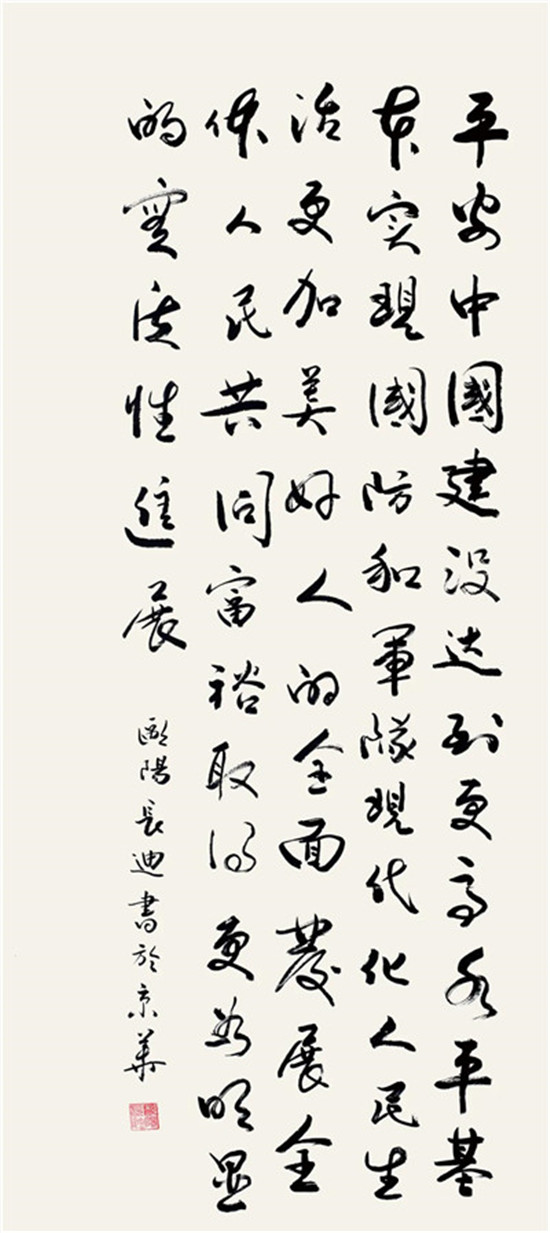 平安中國建设达到更高水平基
本实現國防和軍隊現代化人民生
活更加美好人的全面發展全
体人民共同富裕取得更为明显
的實质性進展
歐陽長迪書於京華